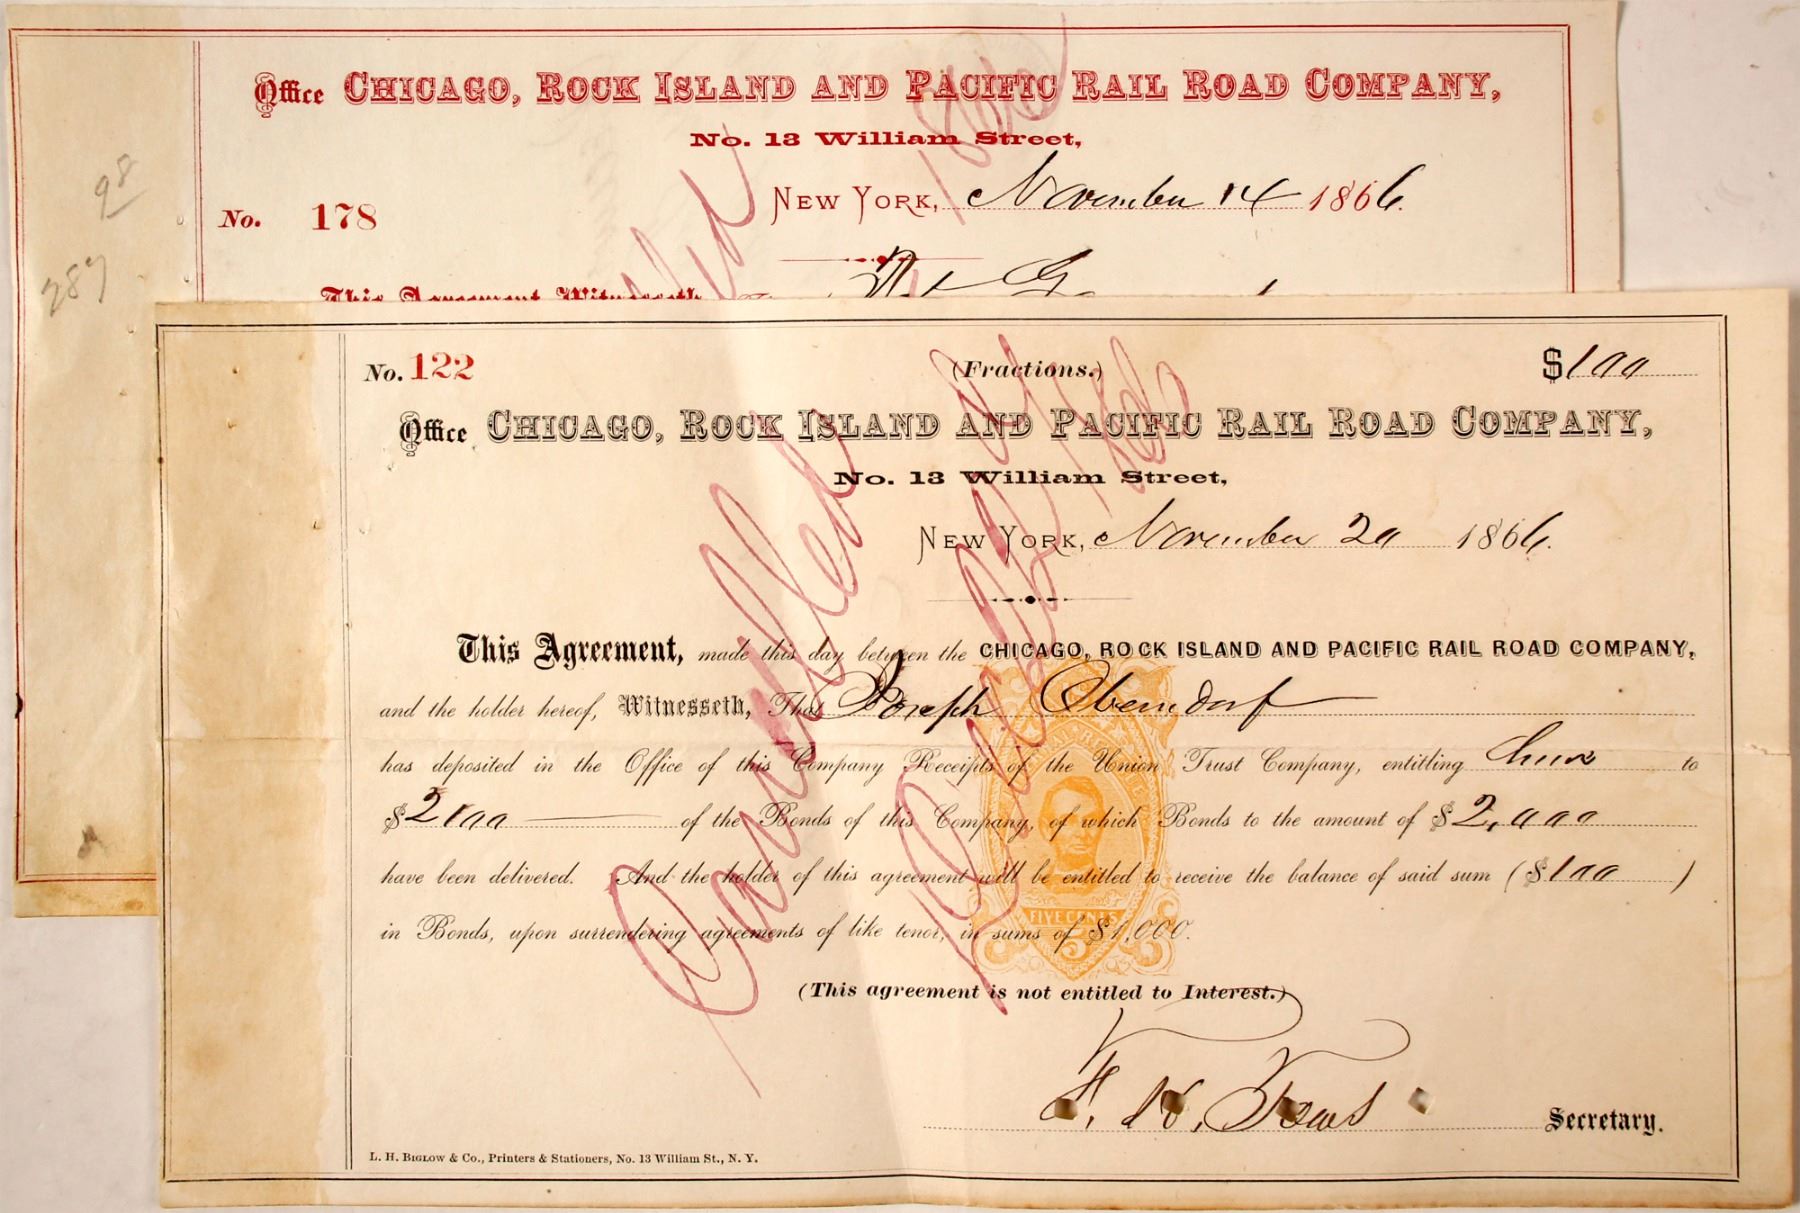 Office CHICAGO, ROCK ISLAND AND PACIFIC RAIL ROAD COMPANY,
No. 13 William Street,
NEW YORK, November 14 1866.
No. 178
98
287
This Agreement Witnesseth,
No. 122 (Fractions.) $100
Office CHICAGO, ROCK ISLAND AND PACIFIC RAIL ROAD COMPANY,
No. 13 William Street,
NEW YORK, November 20 1866.
This Agreement, made this day between the CHICAGO, ROCK ISLAND AND PACIFIC RAIL ROAD COMPANY,
and the holder hereof, Witnesseth, That Joseph Oberndorf
has deposited in the Office of this Company Receipts of the Union Trust Company, entitling to
$2100 of the Bonds of this Company, of which Bonds to the amount of $2,000
have been delivered. And the holder of this agreement will be entitled to receive the balance of said sum ($100)
in Bonds, upon surrendering agreements of like tenor, in sums of $1,000.
FIVE CENTS
5
(This agreement is not entitled to Interest.)
F. H. Tows Secretary.
L. H. BIGLOW & CO., Printers & Stationers, No. 13 William St., N. Y.
Cancelled